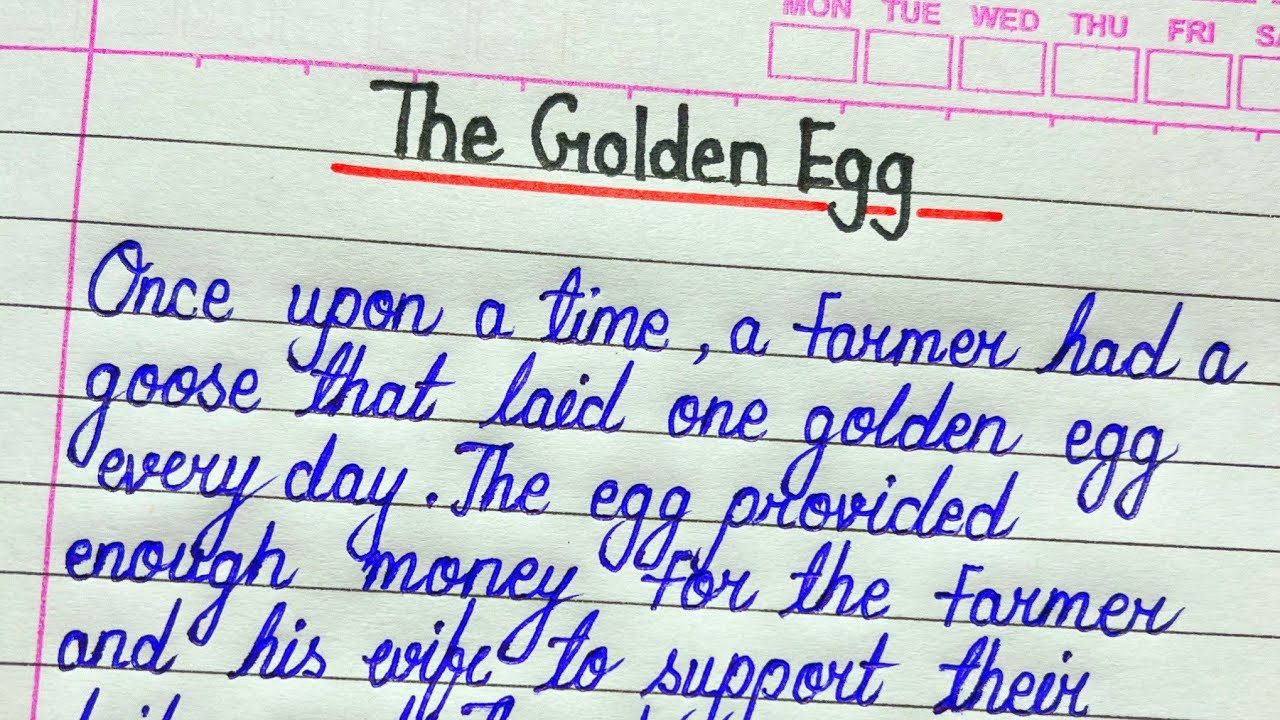 MON TUE WED THU FRI
The Golden Egg
Once upon a time, a farmer had a
goose that laid one golden egg
every day. The egg provided
enough money for the farmer
and his wife to support their